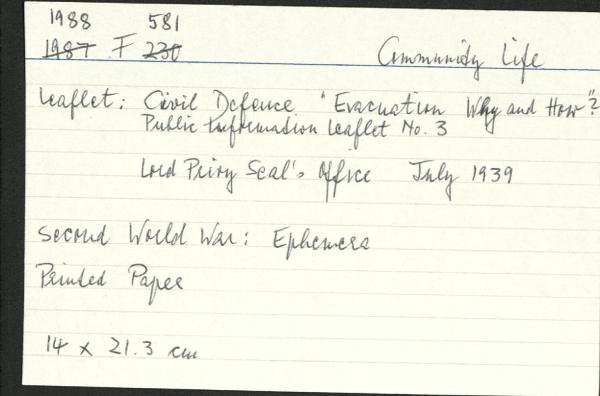 1988 581
1987 F 230
Community Life
Leaflet: Civil Defence "Evacuation Why and How"?
Public Information Leaflet No. 3
Lord Privy Seal's Office July 1939
Second World War: Ephemera
Printed Paper
14 x 21.3 cm